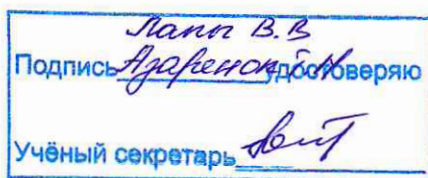 Лапы В.В
Подпись Азаренок Т.Н удостоверяю
Учёный секретарь